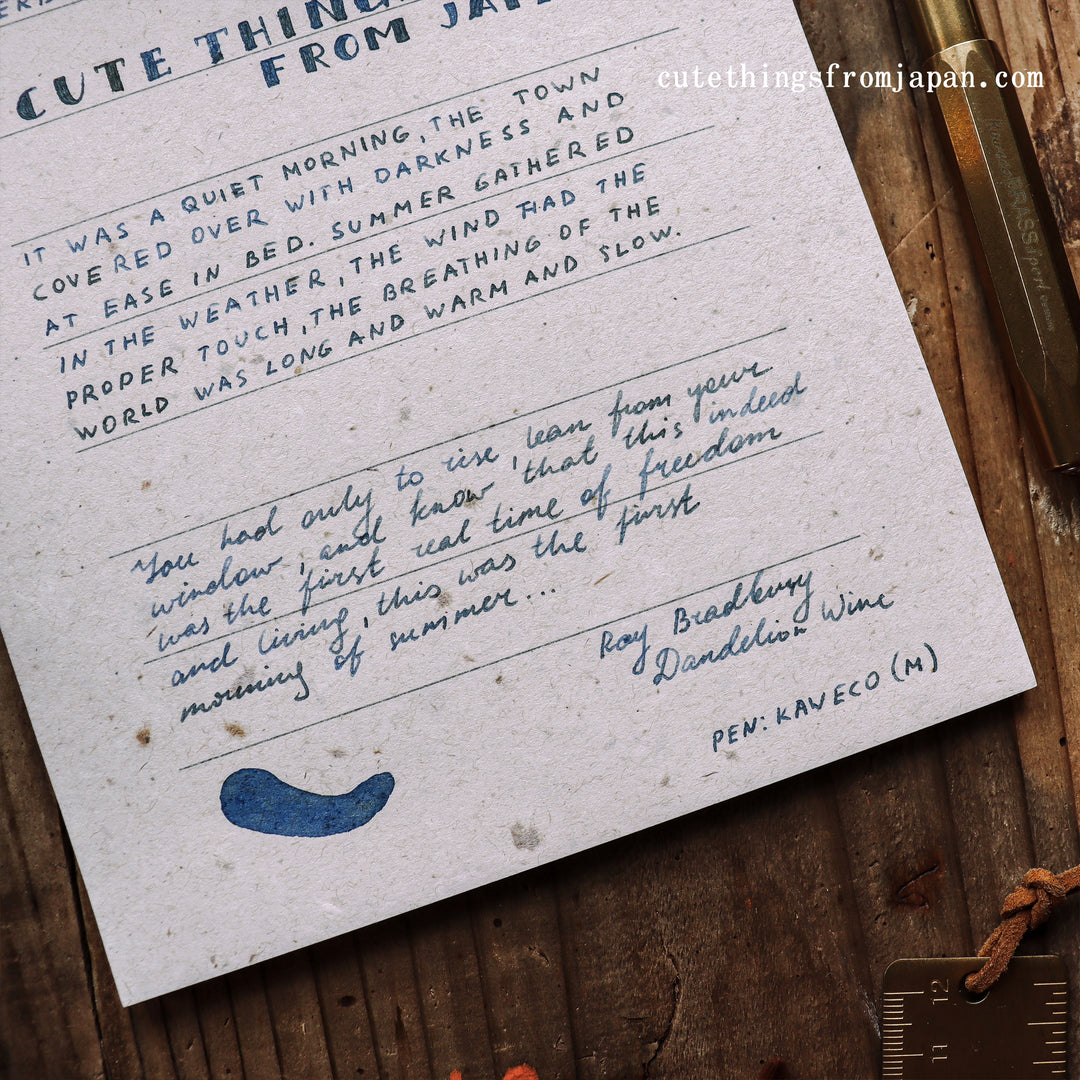 CUTE THINGS
FROM JAPAN
cutethingsfromjapan.com
IT WAS A QUIET MORNING, THE TOWN
COVERED OVER WITH DARKNESS AND
AT EASE IN BED. SUMMER GATHERED
IN THE WEATHER, THE WIND HAD THE
PROPER TOUCH, THE BREATHING OF THE
WORLD WAS LONG AND WARM AND SLOW.
You had only to rise, lean from your
window, and know that this indeed
was the first real time of freedom
and living, this was the first
morning of summer...
Ray Bradbury
Dandelion Wine
PEN: KAWECO (M)
Kaweco BRASS Sport
12
11